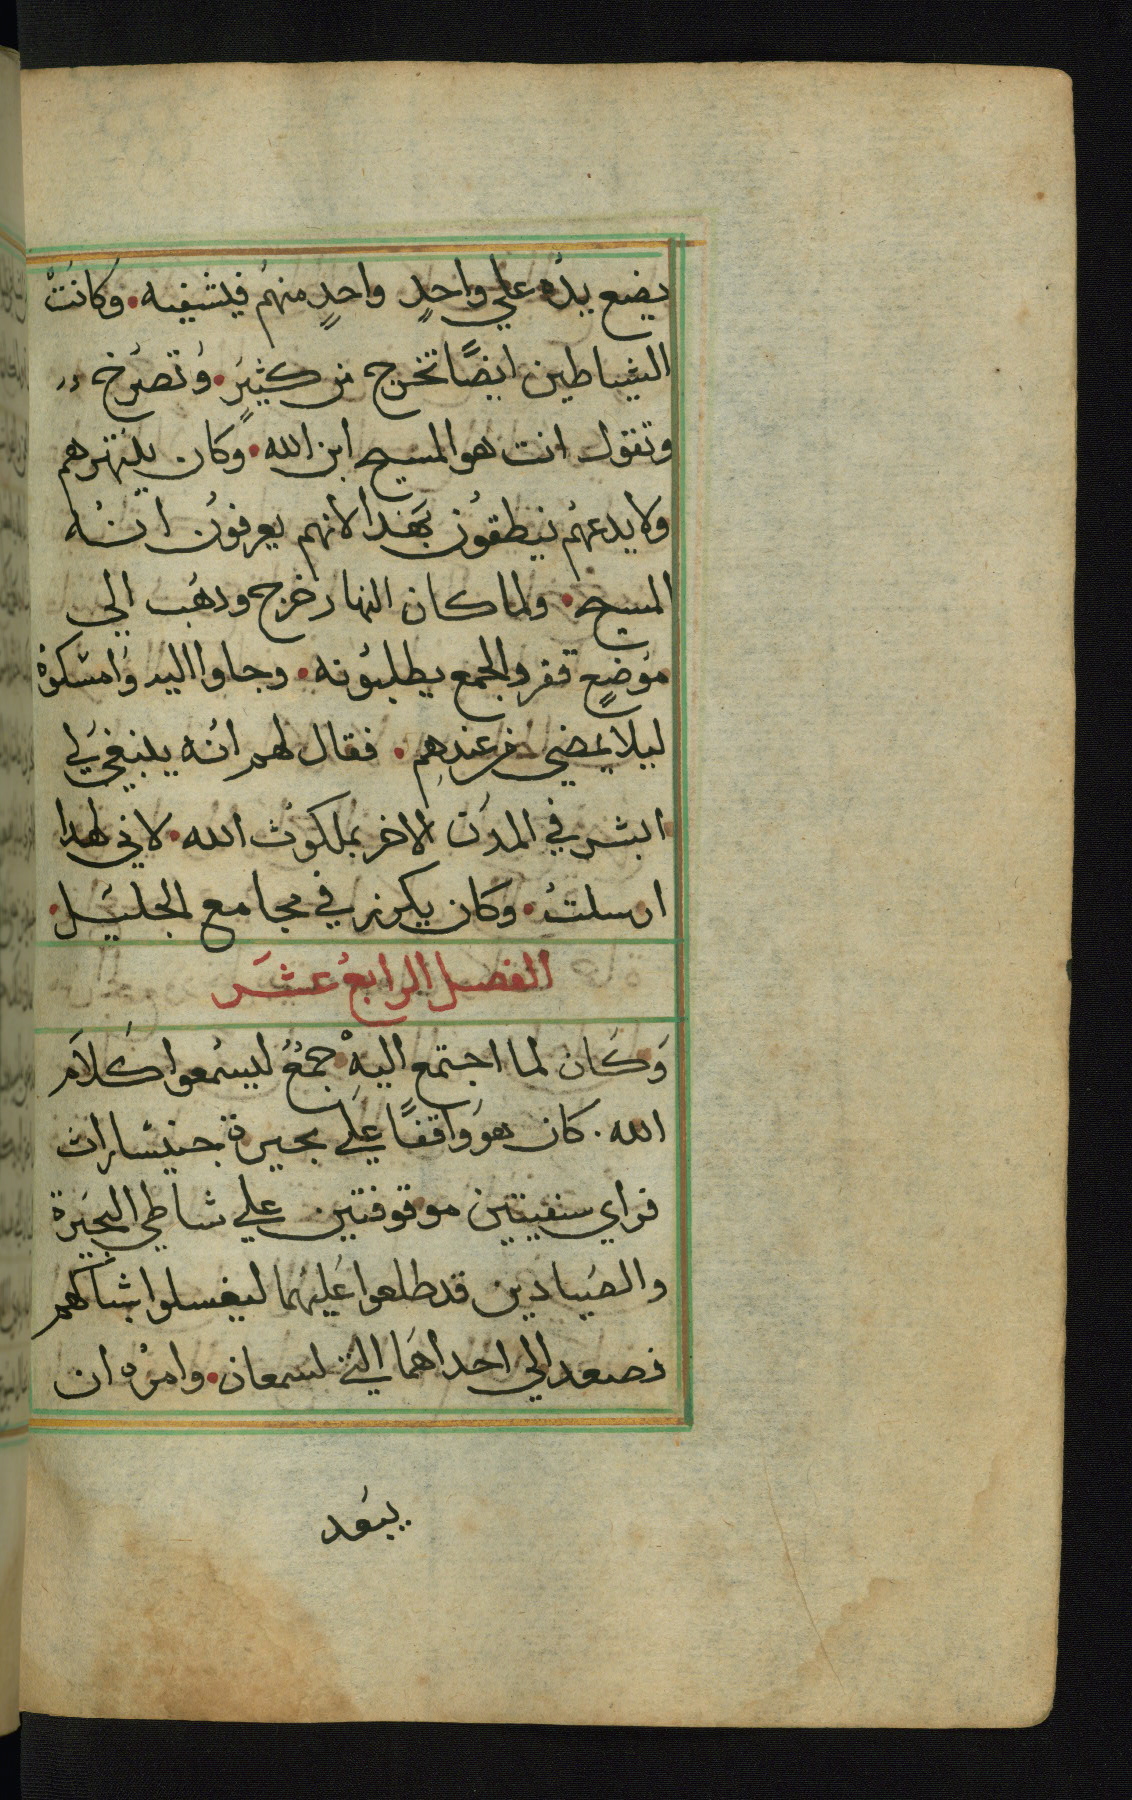 يضع يدُه علي واحدٍ واحدٍ منهم فيشفيه. وكانت
الشياطين ايضًا تخرج من كثيرٍ. وتصرخ
وتقول انت هو المسيح ابن الله. وكان ينتهرهم
ولا يدعهم ينطقون بهذا لانهم يعرفون انه
المسيح. ولما كان النهار خرج ودهب الي
موضعٍ قفر والجمع يطلبونه. وجاوا اليه وامسكوه
ليلا يمضي من عندهم. فقال لهم انه ينبغي لي
ابشر في المدن الاخر بملكوت الله. لاني لهدا
ارسلت. وكان يكرز في مجامع الجليل.
الفصل الرابع عشر
وكان لما اجتمع اليه جمعٌ ليسمعوا كلام
الله. كان هو واقفًا علي بحيرة جنيسارات
فراي سفينتين موقوفتين علي شاطي البحيرة
والصيادين قد طلعوا عليهما ليغسلوا شباكهم
فصعد الي احداهما التي لسمعان. وامره ان
يبعد